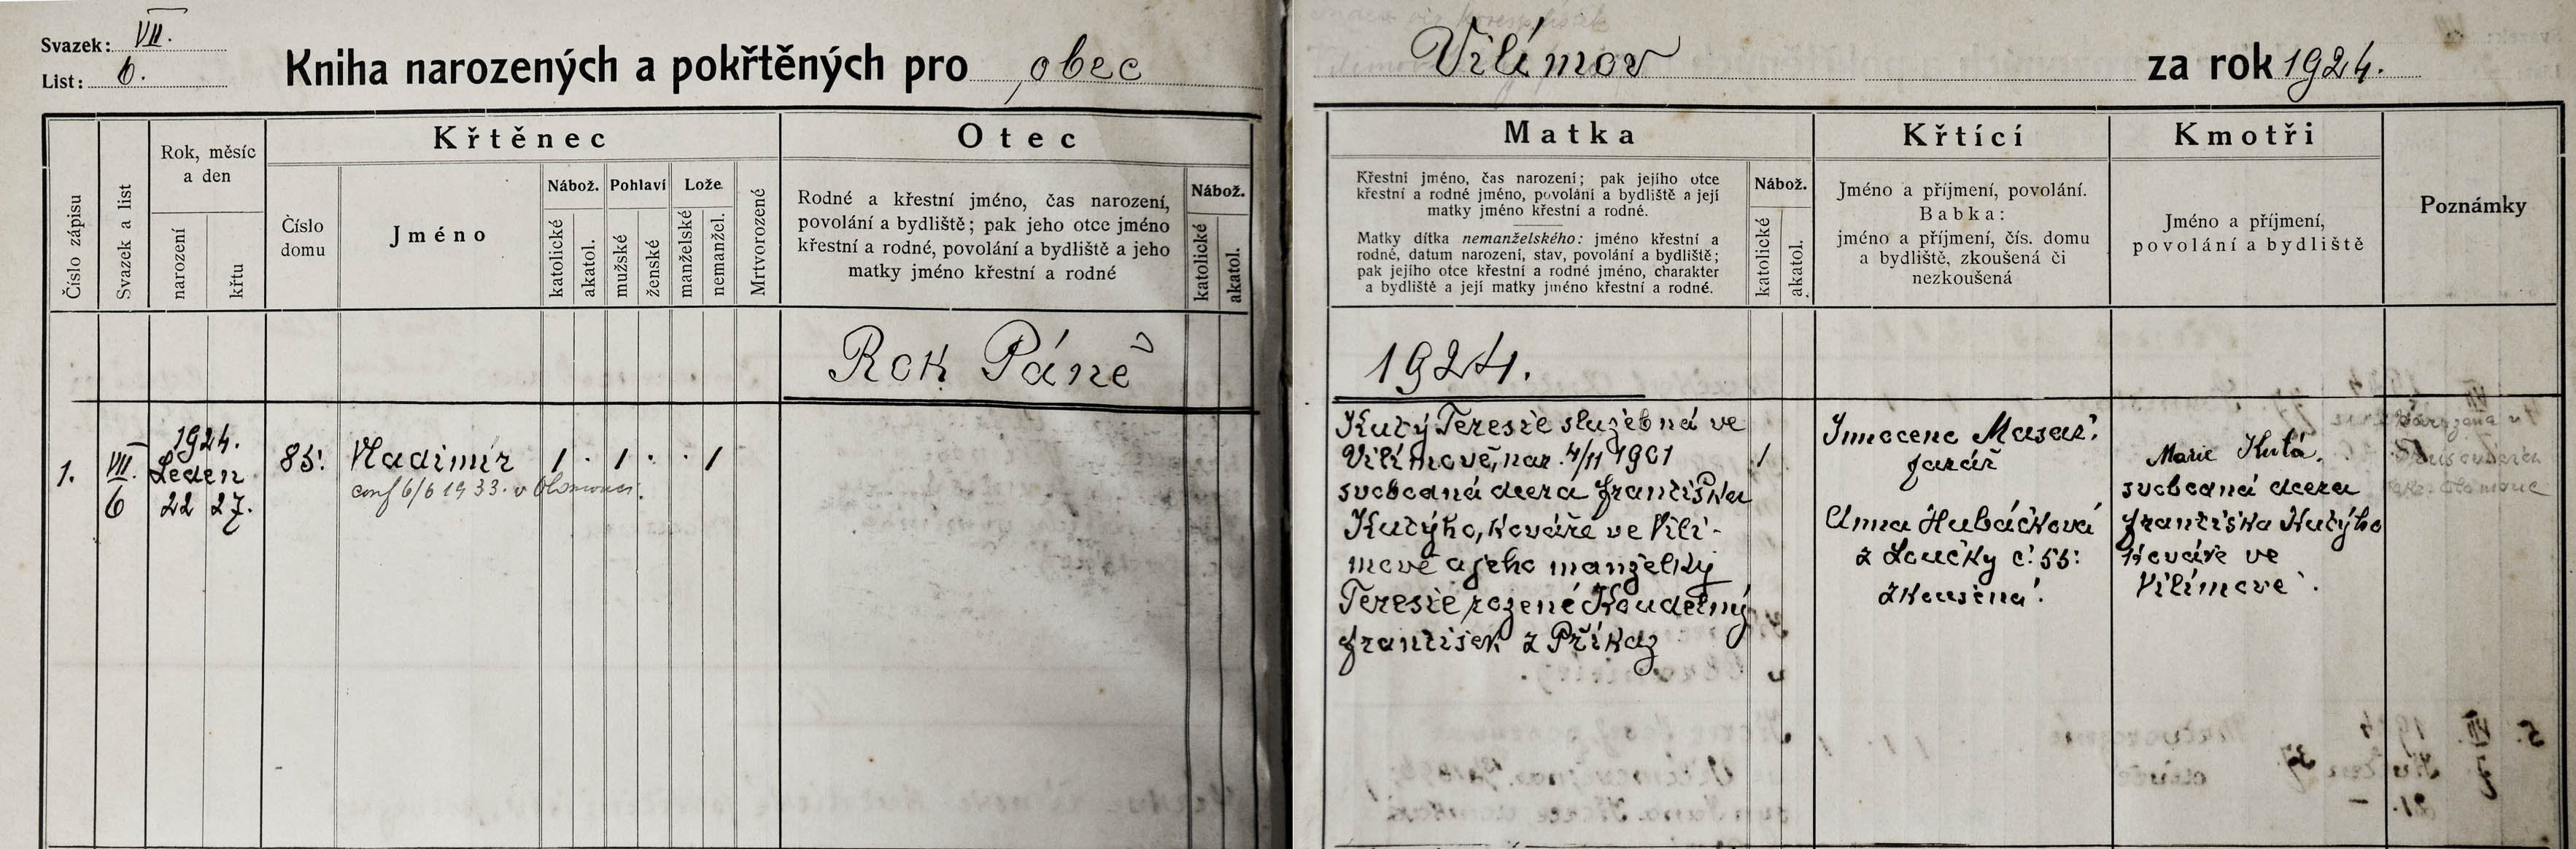 Svazek: VII.
List: 6.
Kniha narozených a pokřtěných pro obec
Vilímov
za rok 1924.
Číslo zápisu
Svazek a list
Rok, měsíc
a den
narození
křtu
Křtěnec
Číslo
domu
Jméno
Nábož.
katolické
akatol.
Pohlaví
mužské
ženské
Lože
manželské
nemanžel.
Mrtvorozené
Otec
Rodné a křestní jméno, čas narození,
povolání a bydliště; pak jeho otce jméno
křestní a rodné, povolání a bydliště a jeho
matky jméno křestní a rodné
Nábož.
katolické
akatol.
Matka
Křestní jméno, čas narození; pak jejího otce
křestní a rodné jméno, povolání a bydliště a její
matky jméno křestní a rodné.
Matky dítka nemanželského: jméno křestní a
rodné, datum narození, stav, povolání a bydliště;
pak jejího otce křestní a rodné jméno, charakter
a bydliště a její matky jméno křestní a rodné.
Nábož.
katolické
akatol.
Křtící
Jméno a příjmení, povolání.
Babka:
jméno a příjmení, čís. domu
a bydliště, zkoušená či
nezkoušená
Kmotři
Jméno a příjmení,
povolání a bydliště
Poznámky
Rok Páně
1924.
1.
VII.
6
1924.
Leden
22 27.
85.
Vladimír
conf 6/6 1933. v Olomouci.
1 . 1 . . 1
Kutý Teresie služebná ve
Vilímově, nar. 4/11 1901
svobodná dcera Františka
Kutýho, kováře ve Vilí-
mově a jeho manželky
Teresie rozené Koudelný
František z Příkaz
1
Innocenc Masař
farář
Anna Hubáčková
z Loučky č. 55.
zkoušená.
Marie Kutá,
svobodná dcera
Františka Kutýho
kováře ve
Vilímově.